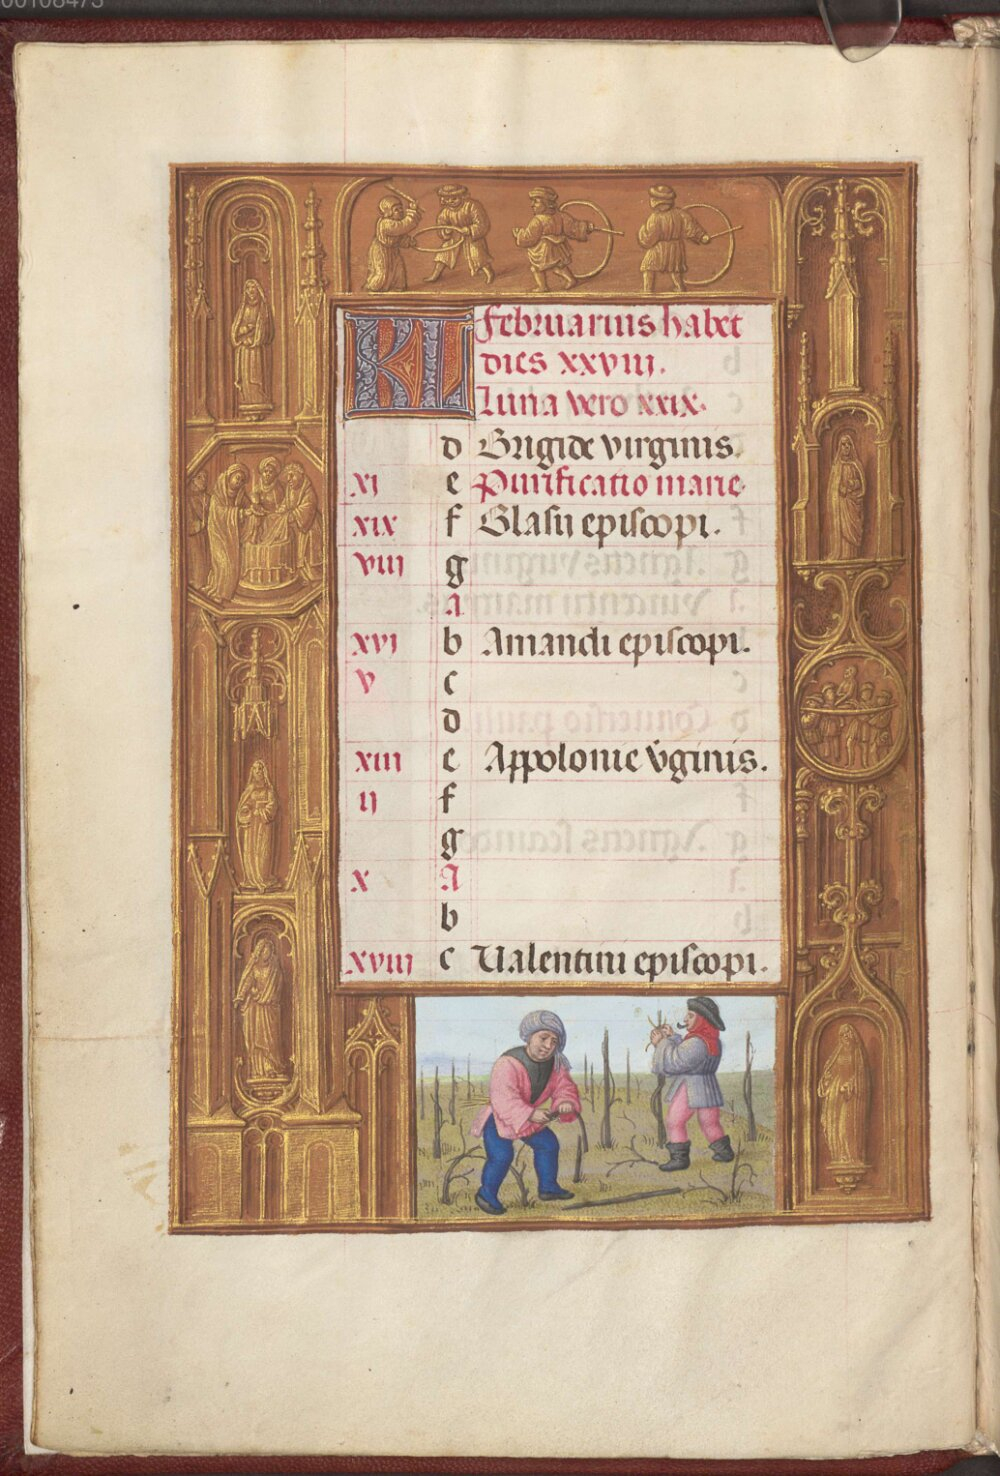 00108473
KL Februarius habet
dies xxviij.
Luna vero xxix.
d Brigide virginis.
xj e Purificatio marie.
xix f Blasii episcopi.
viij g
A
xvj b Amandi episcopi.
v c
d
xiij e Appolonie v̄ginis.
ij f
g
x A
b
xviij c Valentini episcopi.